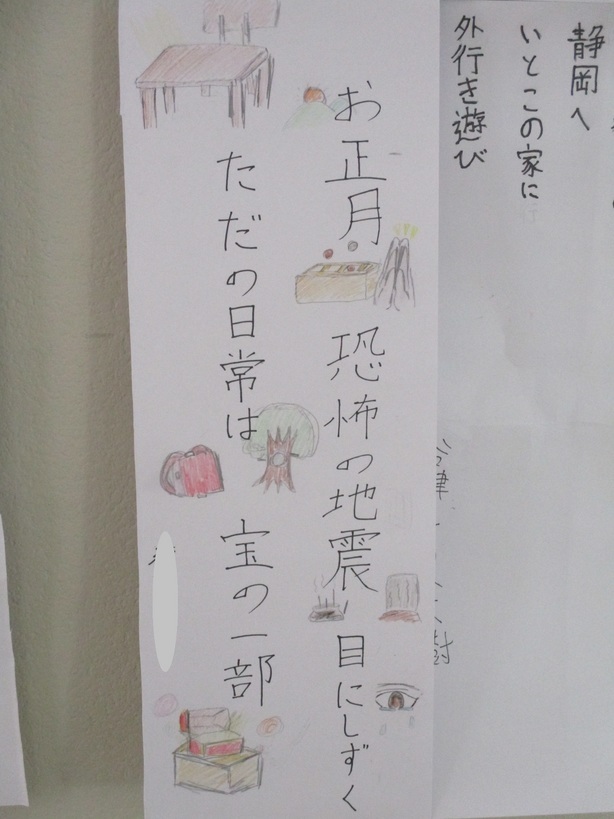 静岡へ
いとこの家に
外行き遊び
お正月　恐怖の地震　目にしずく
ただの日常は　宝の一部